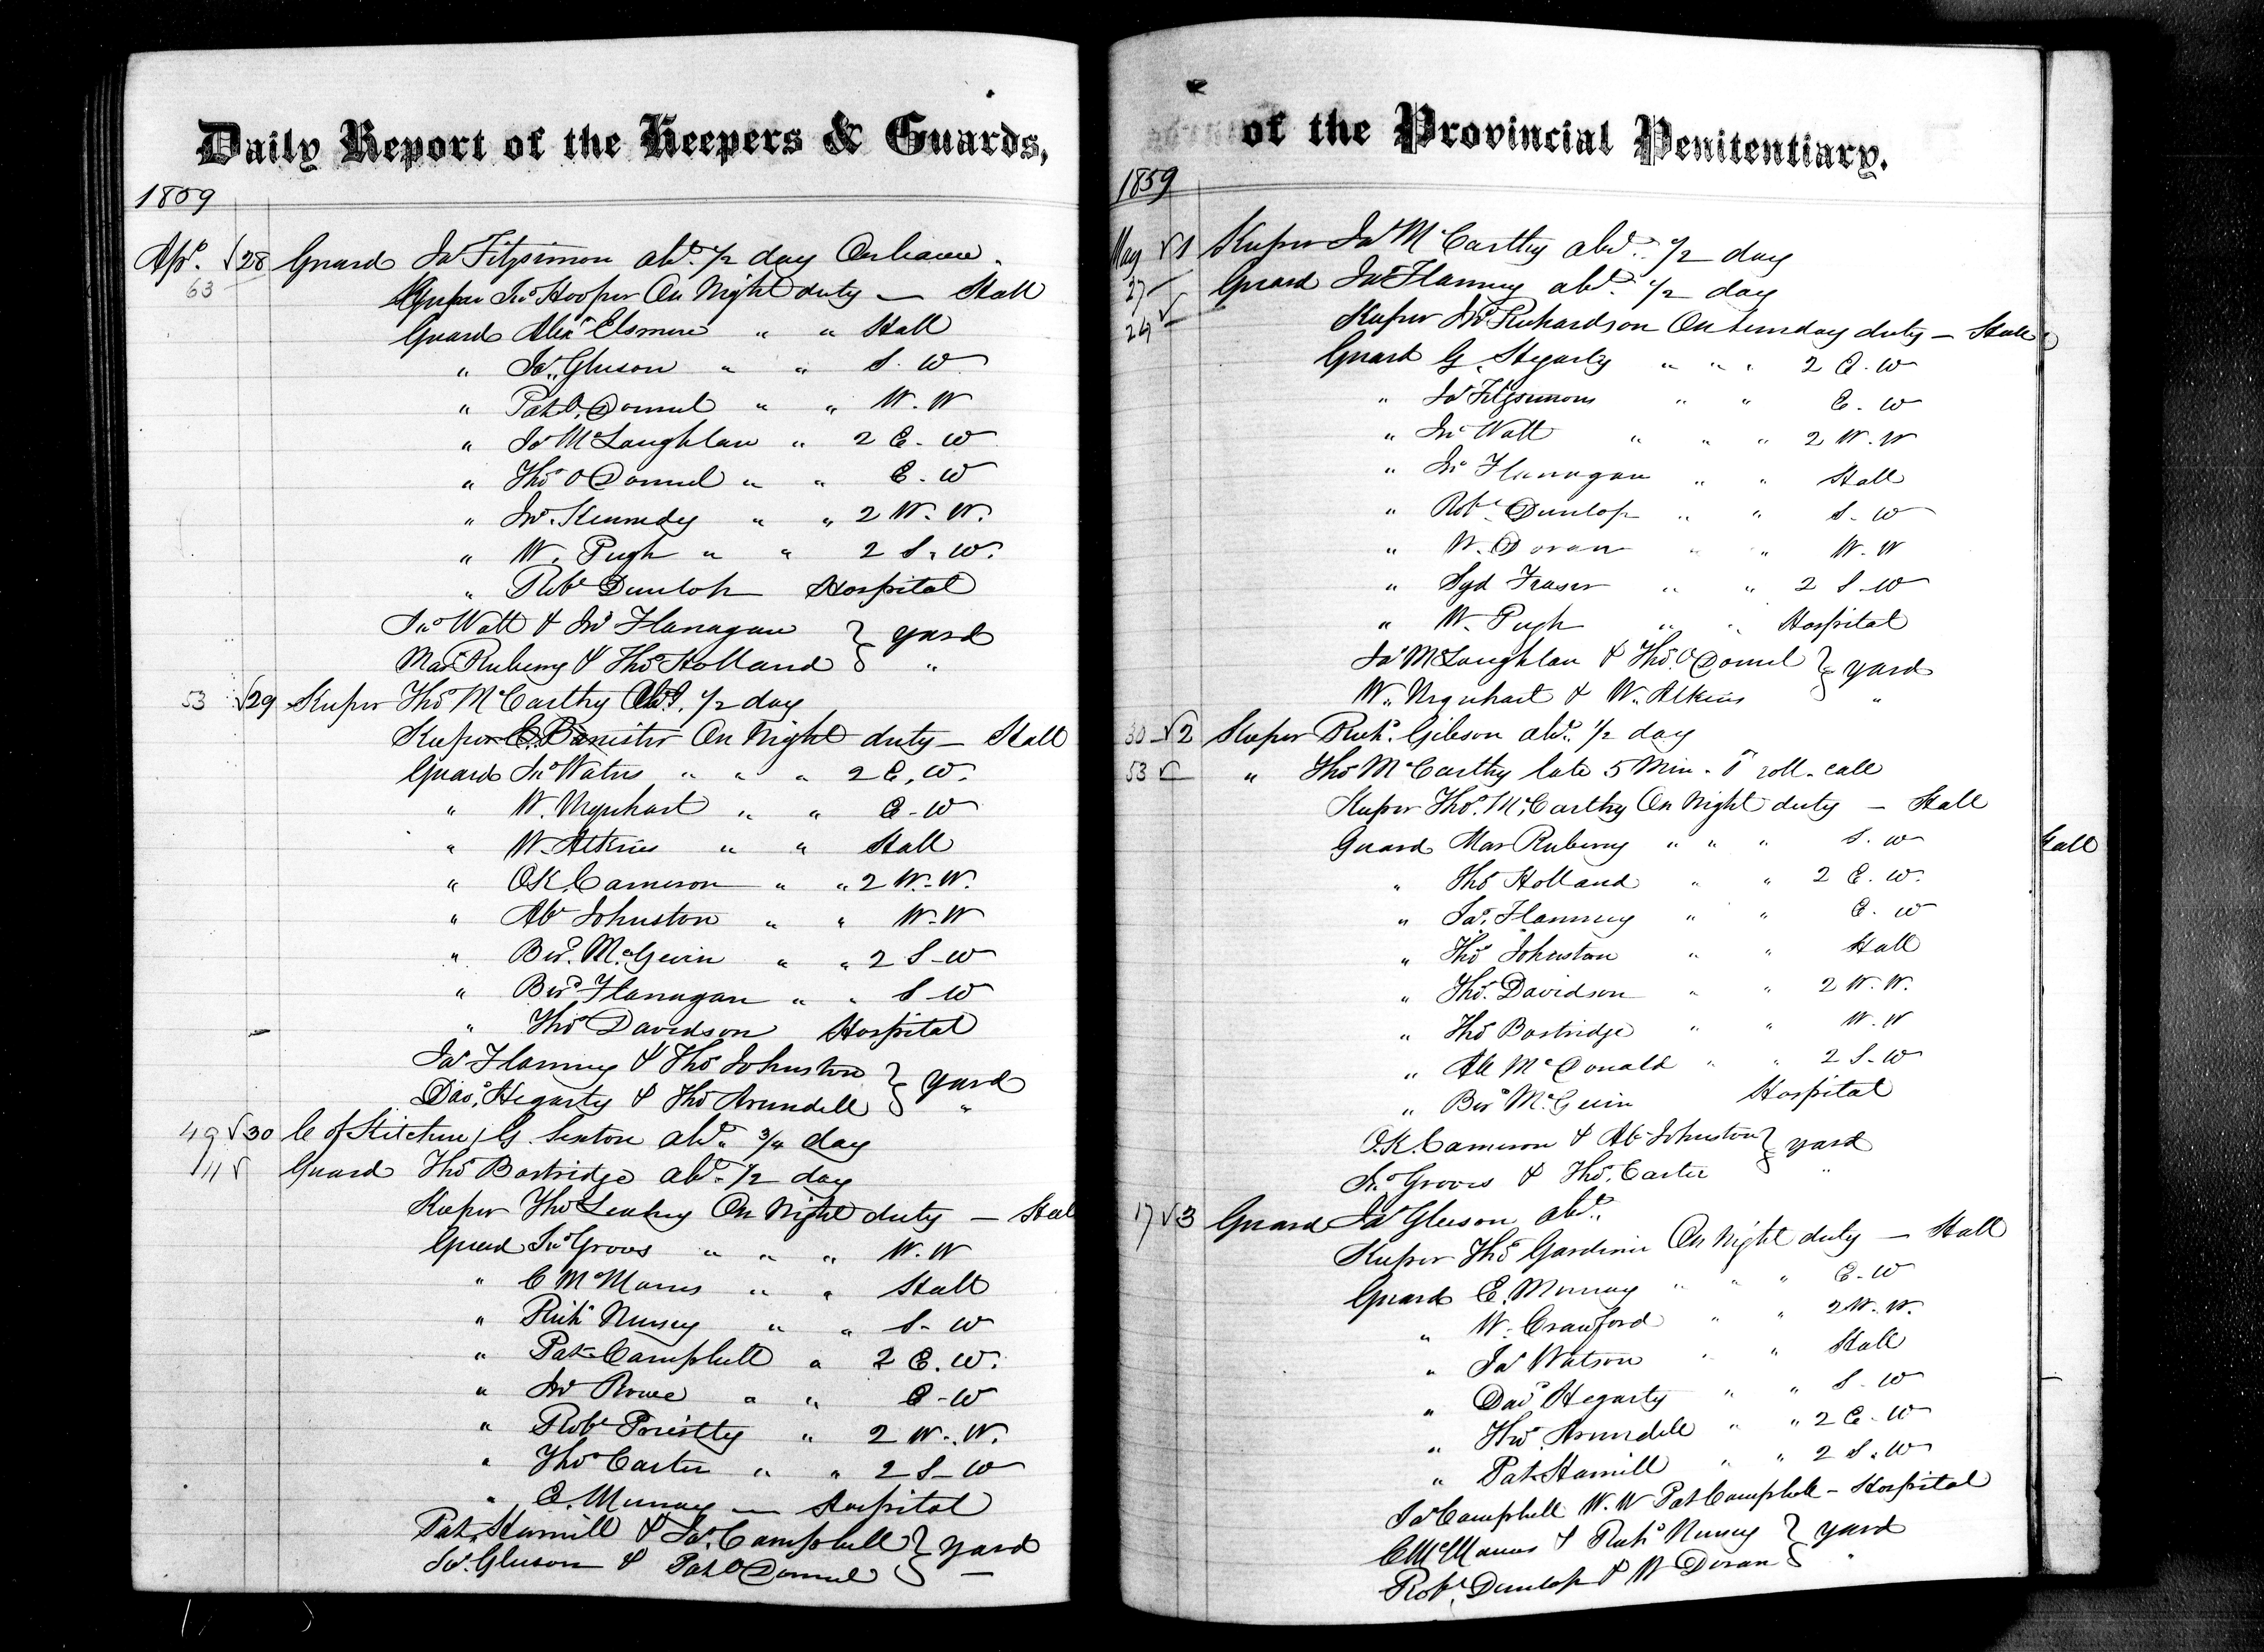 Daily Report of the Keepers & Guards,
1859
Apl. √28 Guard Jas Fitzsimon abd. 1/2 day On leave.
63 Keeper Jno Hooper On Night duty — Hall
Guard Alexr Elsmere " " Hall
" Jas. Gleeson " " S. W
" Pat O'Donnel " " W. W
" Jas McLaughlan " 2 E. W
" Thos O Donnel " " E. W
" Jno. Kennedy " " 2 W. W.
" W. Pugh " " 2 S. W.
" Robt Dunlop Hospital
Jno Watt & Jno Flanagan } yard
Mar. Ruberry & Thos Holland } "
53 √29 Keeper Thos McCarthy Abd. 1/2 day
Keeper C. Banister On Night duty — Hall
Guard Jno Waters " " " 2 E. W.
" W. Urquhart " " E - W
" W. Atkins " " Hall
" O.K. Cameron " " 2 W. W.
" Ab Johnston " " W. W
" Bud. McGevin " " 2 S - W
" Bud. Flanagan " " S - W
" Thos Davidson Hospital
Jas Flannery & Thos Johnston } yard
Davd. Hegarty & Thos Arundell } "
49 √30 C of Kitchen, G. Sexton abd. 3/4 day
11 √ Guard Thos Bostridge abd. 1/2 day
Keeper Thos Leahey On Night duty — Hall
Guard Jno Groves " " " W. W
" C McManus " " Hall
" Richd Nursey " " S - W
" Pat Campbell " 2 E. W.
" Jno Rowe " " E - W
" Robt Priestly " 2 W. W.
" Thos Carter " " 2 S - W
" E. Murray — Hospital
Pat. Hamill & Jas. Campbell } yard
Jas. Gleeson & Pat O Donnel } —
of the Provincial Penitentiary.
1859
May √1 Keeper Jas McCarthy abd. 1/2 day
27 — Guard Jas Flannery abd. 1/2 day
24 √ Keeper Jno Richardson On Sunday duty — Hall
Guard G. Hegarty " " " 2 E. W
" Jas Fitzsimons " " E. W
" Jno Watt " " " 2 W. W
" Jno Flanagan " " Hall
" Robt Dunlop " " S. W
" W. Doran " " W. W
" Syd Fraser " " 2 S - W
" W. Pugh " " Hospital
Jas McLaughlan & Thos O'Donnel } yard
W. Urquhart & W. Atkins } "
30 √2 Keeper Richd. Gibson abd. 1/2 day
53 √ " Thos McCarthy late 5 Min. T roll. call
Keeper Thos. McCarthy On Night duty — Hall
Guard Mar Ruberry " " " S. W
" Thos Holland " " 2 E. W.
" Jas. Flannery " " E. W
" Thos Johnston " " Hall
" Thos. Davidson " " 2 W. W.
" Thos Bostridge " " W. W
" Al McDonald " " 2 S - W
" Bud McGevin Hospital
O.K. Cameron & Ab Johnston } yard
Jno Groves & Thos. Carter "
17 √3 Guard Jas Gleeson abd.
Keeper Thos Gardiner On Night duty — Hall
Guard E. Murray " " " E - W
" W. Crawford " " 2 W. W.
" Jas Watson " " Hall
" Davd Hegarty " " S - W
" Thos. Arundell " " 2 E - W
" Pat. Hamill " " 2 S. W
Jas Campbell W. W Pat Campbell — Hospital
C McManus & Richd Nursey } yard
Robt. Dunlop & W Doran } "
Hall